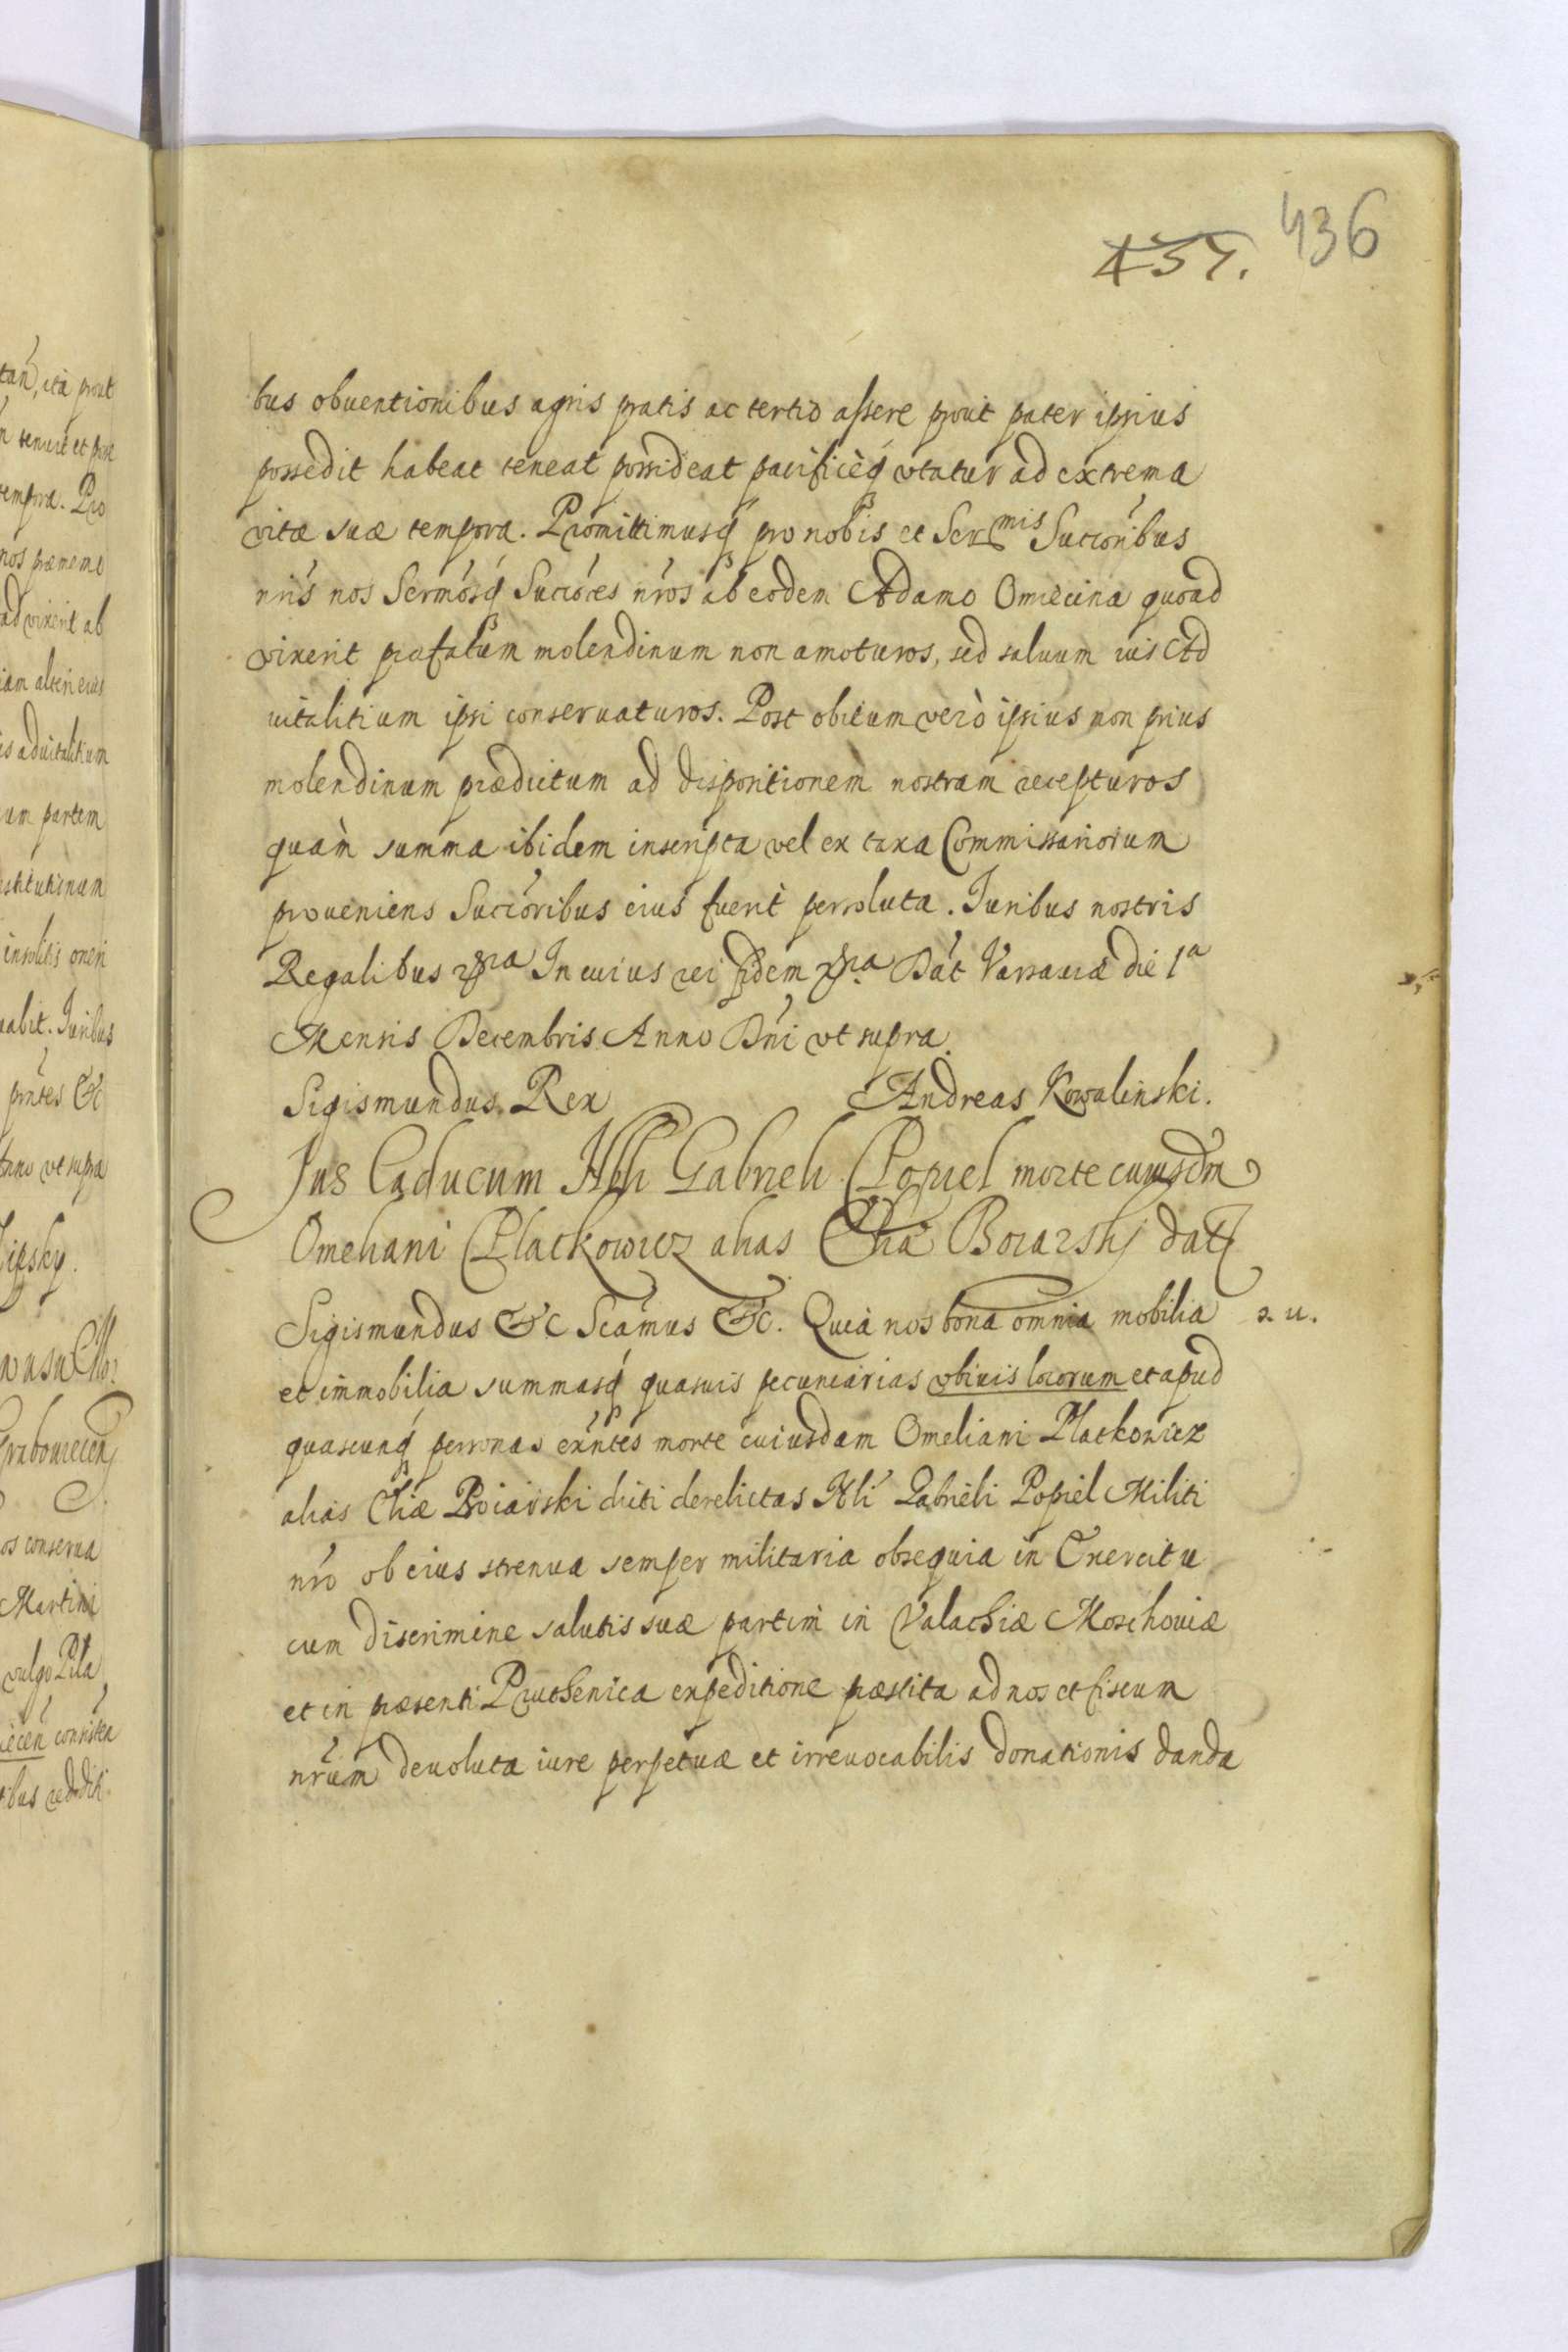 436
437.
bus obuentionibus agris pratis ac tertio assere prout pater ipsius
possedit habeat teneat possideat pacificèq́ vtatur ad extrema
vitæ suæ tempora. Promittimusq́ pro nobis et Ser^mis Succoribus
nris nos Sermosq́ Succores nros ab eodem Adamo Omiecina quoad
vixerit præfatum molendinum non amoturos, sed saluum ius Ad
uitalitium ipsi conseruaturos. Post obitum verò ipsius non prius
molendinum prædictum ad dispositionem nostram recepturos
quàm summa ibidem inscripta vel ex taxa Commissariorum
proueniens Succoribus eius fuerit persoluta. Iuribus nostris
Regalibus In cuius rei fidem Dat Varsauiæ die 1^a
Mensis Decembris Anno Dni vt supra.
Sigismundus Rex Andreas Kowalinski.
Jus Caducum Nbli Gabrieli Popiel morte cuiusdm
Omeliani Platkowicz alias Elia Boiarskj datz
Sigismundus &c Scamus &c. Quia nos bona omnia mobilia s. u.
et immobilia summasq́ quasuis pecuniarias vbiuis locorum et apud
quascunq́ personas exntes morte cuiusdam Omeliani Platkowicz
alias Eliæ Boiarski dicti derelictas Nli Gabrieli Popiel Militi
nro ob eius strenua semper militaria obsequia in Exercitu
cum discrimine salutis suæ partim in Valachiæ Moschouiæ
et in præsenti Pruthenica expeditione præstita ad nos et fiscum
nrum deuoluta iure perpetuæ et irreuocabilis donationis danda